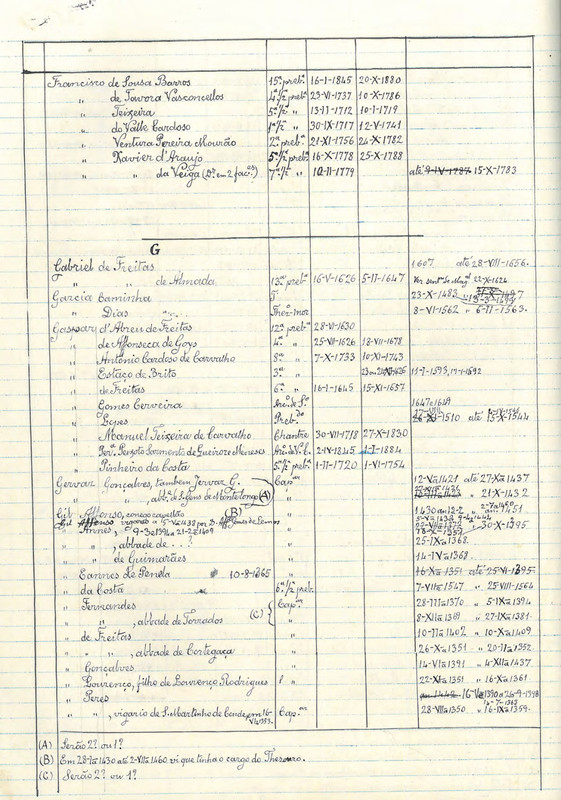 Francisco de Sousa Barros 15ª preb. 16-I-1845 20-X-1880
„ de Tavora Vasconcellos 4ª ½ preb. 23-VI-1737 10-X-1786
„ Teixeira 5ª ½ „ 13-II-1712 10-I-1719
„ do Valle Cardoso 1ª ½ „ 30-IX-1717 12-V-1741
„ Ventura Pereira Mourão 2ª preb. 21-XI-1756 24-X-1782
„ Xavier d'Araujo 5ª ½ preb. 16-X-1778 25-X-1788
„ „ da Veiga 7ª ½ „ 10-II-1779 até 15-X-1783
G
Gabriel de Freitas 1607 até 28-VIII-1656.
„ „ de Almada 13ª preb. 16-V-1626 5-II-1647
Garcia Caminha 23-X-1483
„ Dias Thes. mor 8-VI-1562 „ 6-II-1563.
Gaspar d'Abreu de Freitas 12ª preb. 28-VI-1630
„ de Affonseca de Goys 4ª „ 25-VII-1626 18-VII-1678
„ Antonio Cardoso de Carvalho 5ª „ 7-X-1733 10-XI-1743
„ Estaço de Brito 3ª „
„ de Freitas 6ª „ 16-I-1645 15-XI-1657.
„ Gomes Cerveira
„ Lopes Preb. 1510 até 15-X-1544
„ Manuel Teixeira de Carvalho Chantre 30-VII-1718 27-X-1830
„ Per. Peixoto Sarmento de Queiroz e Meneses 2-IV-1845 1-I-1884
„ Pinheiro da Costa 5ª ½ preb. 1-II-1720 1-VI-1754
Gervaz Gonçalves, tambem Jervaz G. Cap. 12-V-1421 até 27-X-1437
„ „ abb. de S. Gens de Montelongo (A) „ 21-X-1432
Gil Affonso, conego capellão (B) „
Gil Affonso vigario
„ Annes, 9-3-1394 a 21-2-1409 „ 30-X-1395
„ „ , abbade de . . ? „ 25-IX-1368.
„ „ de Guimarães „ 14-IV-1368.
„ Eannes de Penela 10-8-1365 „ 16-X-1351 até 25-VI-1395.
„ da Costa 6ª ½ preb. 7-VII-1547 „ 25-VIII-1564
„ Fernandes Cap. 28-II-1370 „ 5-IX-1394
„ „ , abbade de Torrados (C) „ 8-XII-1369 „ 27-IX-1381.
„ de Freitas „ 10-II-1402 „ 10-X-1409
„ „ , abbade de Cortegaça „ 26-X-1351 „ 20-II-1352.
„ Gonçalves „ 14-VI-1391 „ 4-XII-1437
„ Lourenço, filho de Lourenço Rodrigues „ 22-XI-1351 „ 16-X-1361
„ Peres
„ „ , vigario de S. Martinho de Cap. 28-VII-1350 „ 16-IX-1359.
(A) Serão 2? ou 1?
(B) Em 28-IX-1430 até 2-VII-1460 vi que tinha o cargo do Thesouro.
(C) Serão 2? ou 1?